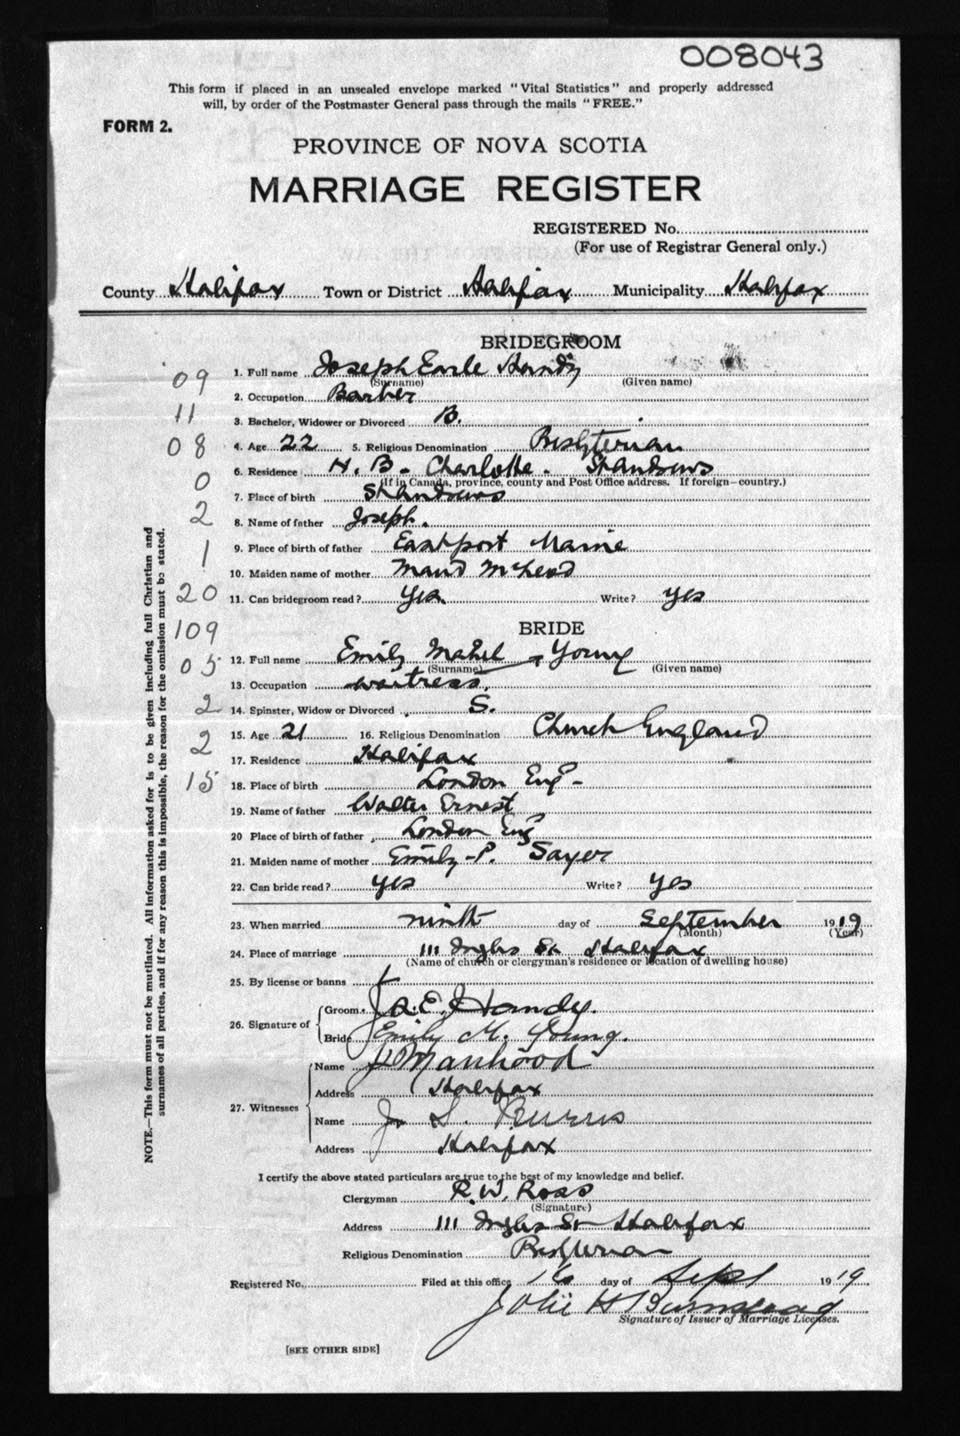 008043
This form if placed in an unsealed envelope marked "Vital Statistics" and properly addressed
will, by order of the Postmaster General pass through the mails "FREE."
FORM 2.
PROVINCE OF NOVA SCOTIA
MARRIAGE REGISTER
REGISTERED No.
(For use of Registrar General only.)
County Halifax Town or District Halifax Municipality Halifax
BRIDEGROOM
09 1. Full name Joseph Earle Handy
(Surname) (Given name)
2. Occupation Barber
11 3. Bachelor, Widower or Divorced B.
08 4. Age 22 5. Religious Denomination Presbyterian
0 6. Residence N. B. Charlotte. St Andrews
(If in Canada, province, county and Post Office address. If foreign—country.)
7. Place of birth St Andrews
2 8. Name of father Joseph.
1 9. Place of birth of father Eastport Maine
10. Maiden name of mother Maud McLeod
20 11. Can bridegroom read? Yes Write? yes
109 BRIDE
05 12. Full name Emily Mabel Young
(Surname) (Given name)
13. Occupation waitress.
2 14. Spinster, Widow or Divorced S.
2 15. Age 21 16. Religious Denomination Church England
17. Residence Halifax
15 18. Place of birth London Eng
19. Name of father Walter Ernest
20 Place of birth of father London Eng
21. Maiden name of mother Emily P. Sayer
22. Can bride read? yes Write? yes
23. When married ninth day of September 1919
(Month) (Year)
24. Place of marriage 111 Inglis St Halifax
(Name of church or clergyman's residence or location of dwelling house)
25. By license or banns L
26. Signature of Groom J. E. Handy.
Bride Emily M. Young.
27. Witnesses Name Manhood
Address Halifax
Name J. S. Burns
Address Halifax
I certify the above stated particulars are true to the best of my knowledge and belief.
Clergyman R. W. Ross
(Signature)
Address 111 Inglis St Halifax
Religious Denomination Presbyterian
Registered No. Filed at this office 16 day of Sept 1919
H
Signature of Issuer of Marriage Licenses.
[SEE OTHER SIDE]
NOTE.—This form must not be mutilated. All information asked for is to be given including full Christian and
surnames of all parties, and if for any reason this is impossible, the reason for the omission must be stated.